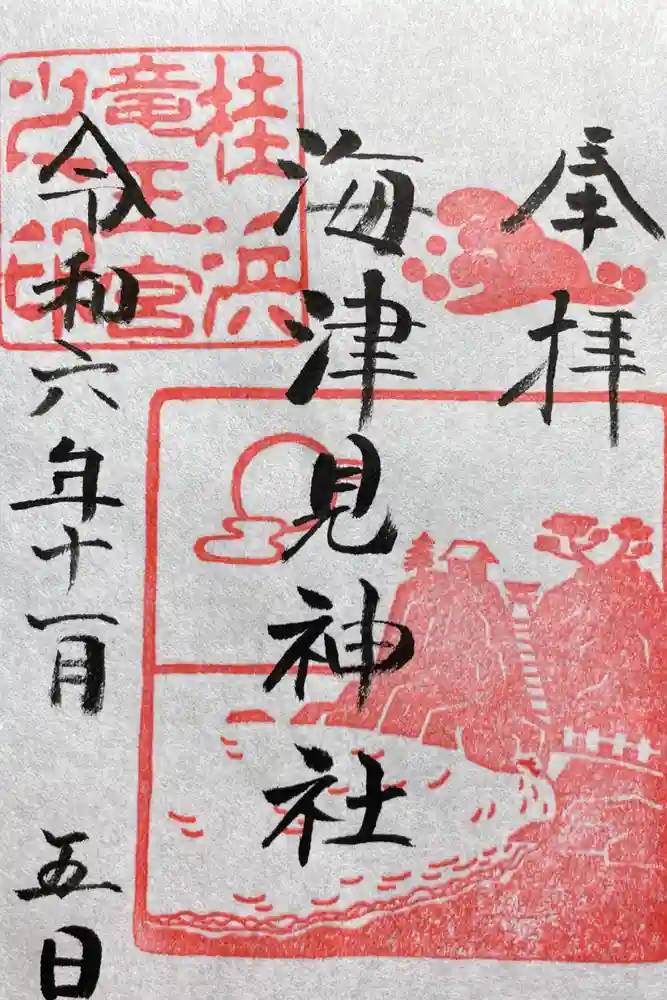 奉拝
海津見神社
令和六年十一月五日
桂浜
竜王宮
之印